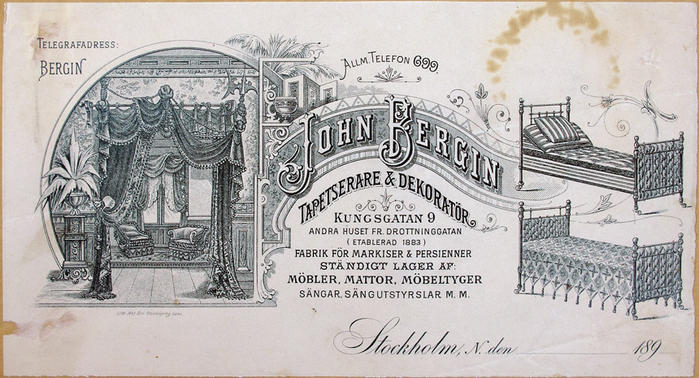 TELEGRAFADRESS:
BERGIN
ALLM. TELEFON 699.
JOHN BERGIN
TAPETSERARE & DEKORATÖR
KUNGSGATAN 9
ANDRA HUSET FR. DROTTNINGGATAN
(ETABLERAD 1883)
FABRIK FÖR MARKISER & PERSIENNER
STÄNDIGT LAGER AF:
MÖBLER, MATTOR, MÖBELTYGER
SÄNGAR, SÄNGUTSTYRSLAR M. M.
Stockholm, N. den 189